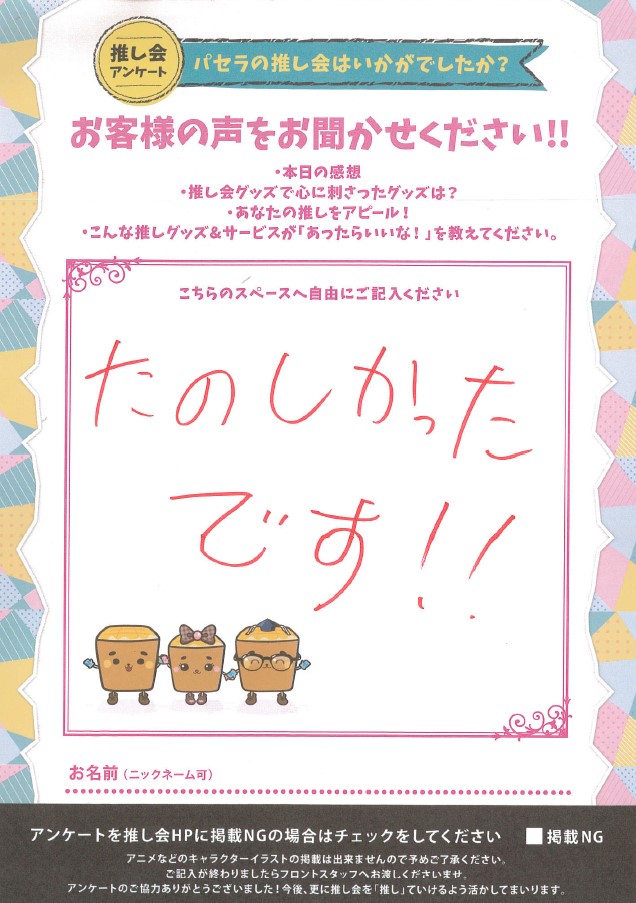 推し会
アンケート
パセラの推し会はいかがでしたか？
お客様の声をお聞かせください!!
・本日の感想
・推し会グッズで心に刺さったグッズは？
・あなたの推しをアピール！
・こんな推しグッズ&サービスが「あったらいいな！」を教えてください。
こちらのスペースへ自由にご記入ください
たのしかった
です!!
お名前（ニックネーム可）
アンケートを推し会HPに掲載NGの場合はチェックをしてください ■掲載NG
アニメなどのキャラクターイラストの掲載は出来ませんので予めご了承ください。
ご記入が終わりましたらフロントスタッフへお渡しくださいませ。
アンケートのご協力ありがとうございました！今後、更に推し会を「推し」ていけるよう活かしてまいります。